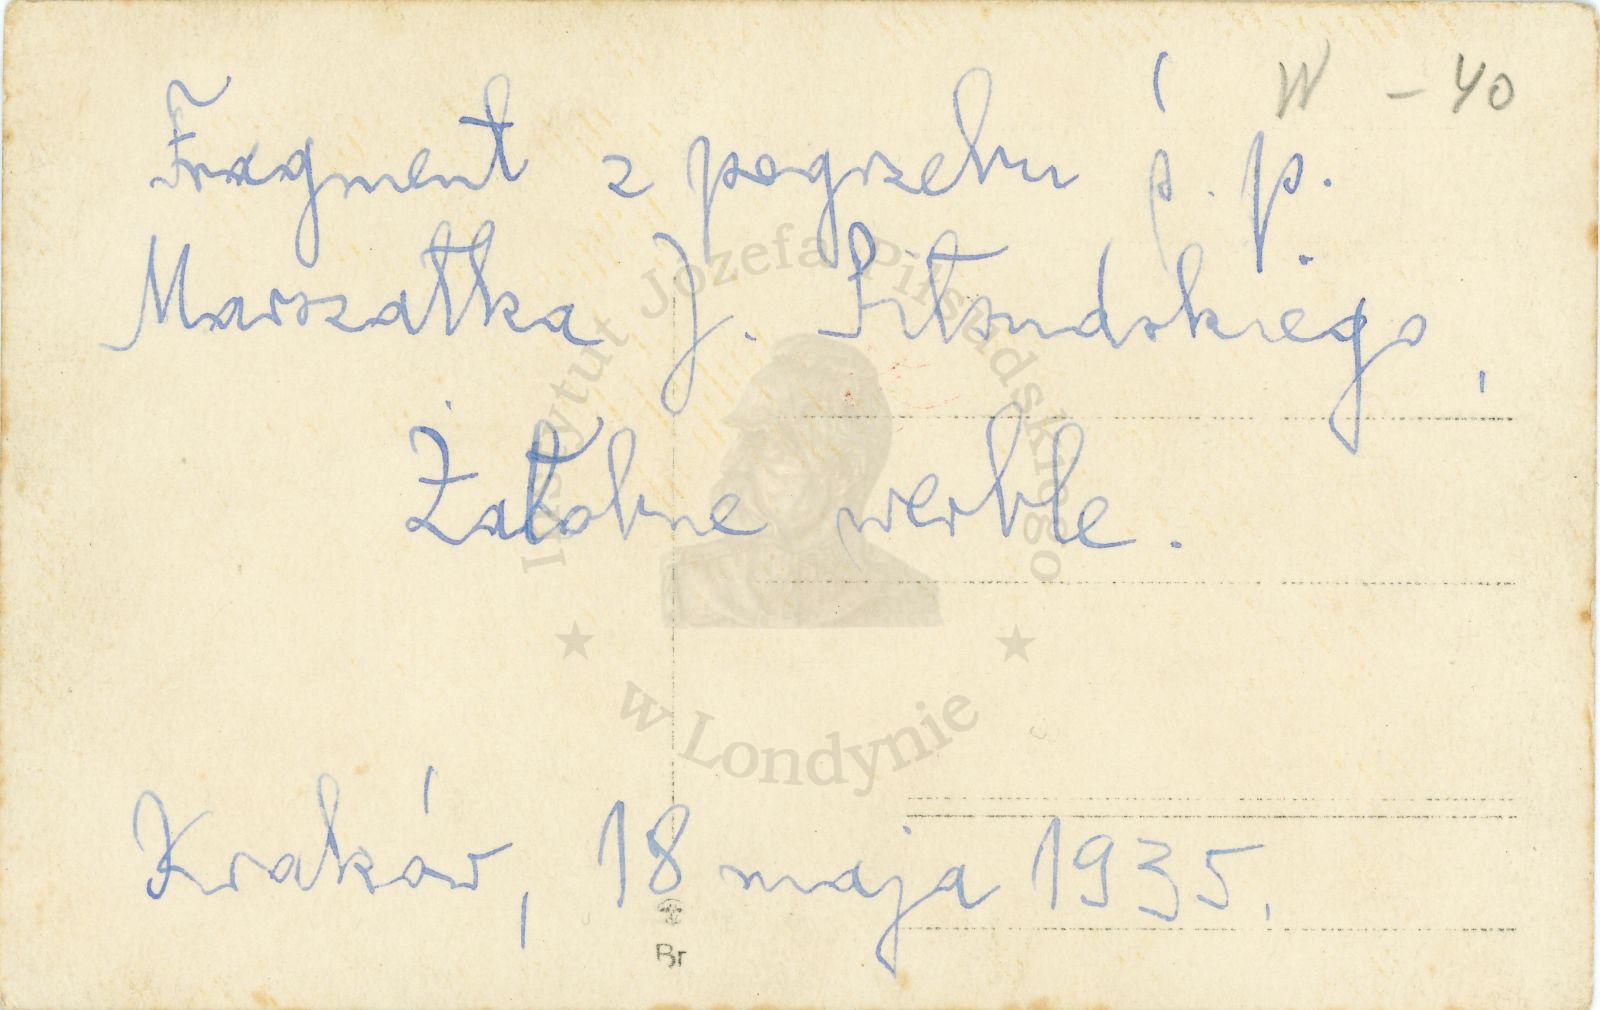 W - 40
Fragment z pogrzebu ś. p.
Marszałka J. Piłsudskiego,
Żałobne werble.
Kraków, 18 maja 1935.
Br
Instytut Józefa Piłsudskiego
w Londynie